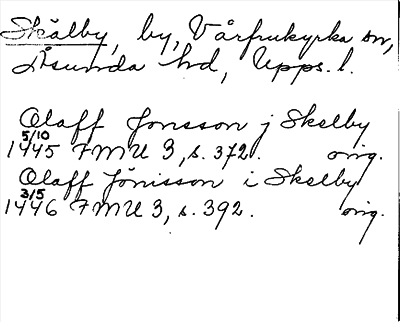 Skälby, by, Vårfrukyrka sn,
Åsunda hd, Upps. l.
Olaff Jonsson j Skelby
5/10
1445 FMU 3, s. 372. orig.
Olaff Jönisson i Skelby
3/5
1446 FMU 3, s. 392. orig.